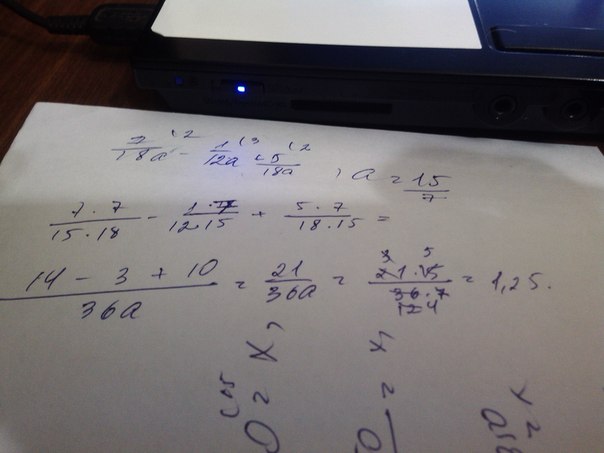 7/18a (2 - 1/12a (3 + 5/18a (2 , a = 15/7
7·7/15·18 - 1·7/12·15 + 5·7/18·15 =
14 - 3 + 10/36a = 21/36a = 21·15/36·7 = 1,25.
3 5
12 4
cos
0 = x,
= x,